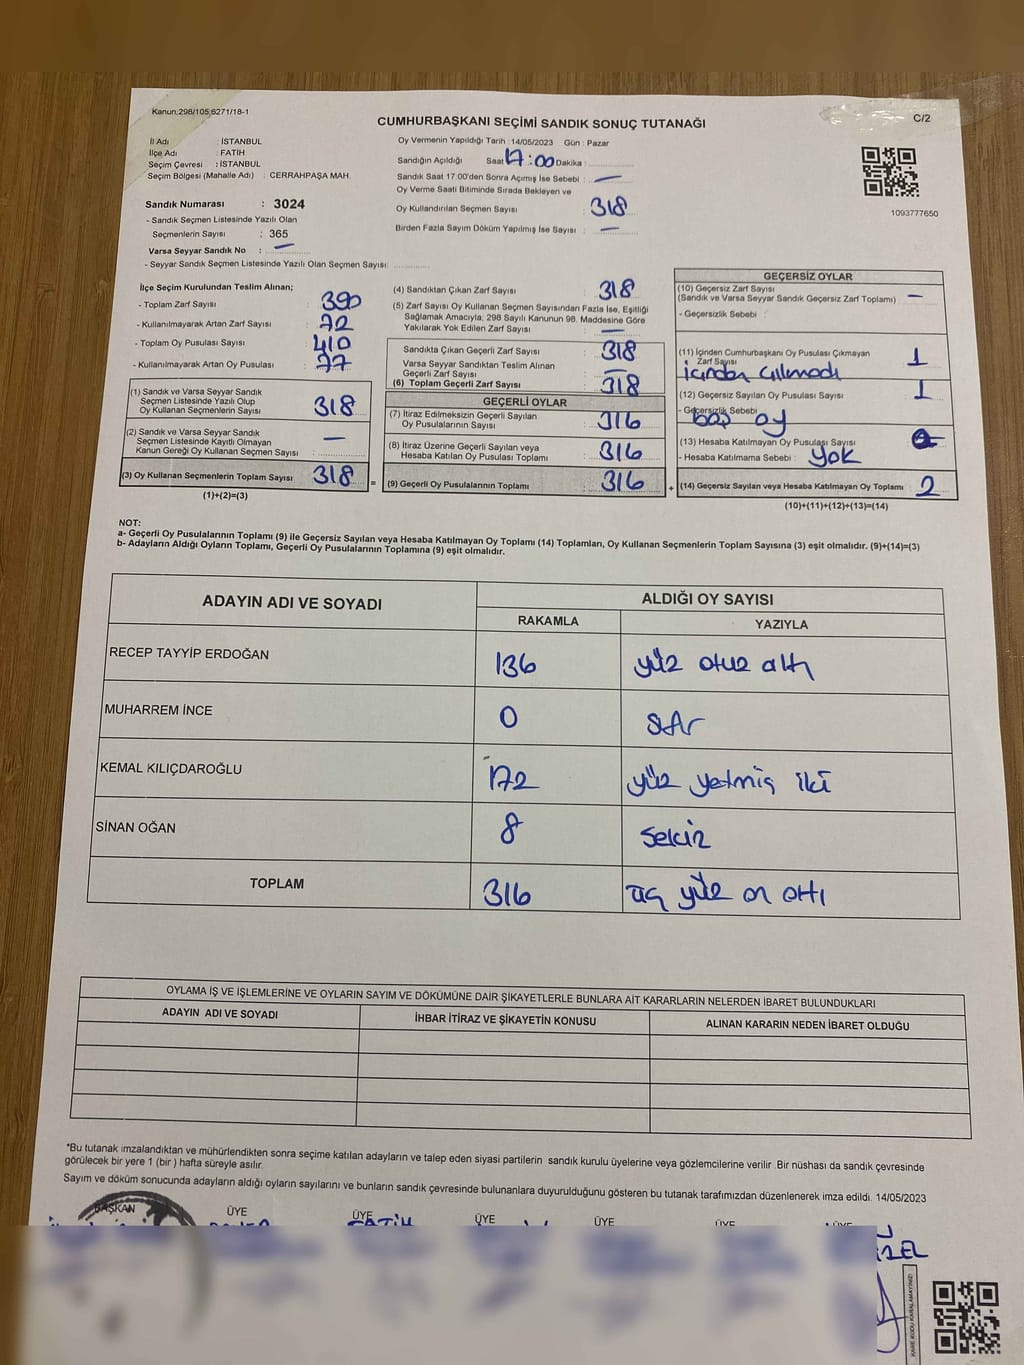 Kanun:298/105,6271/18-1
CUMHURBAŞKANI SEÇİMİ SANDIK SONUÇ TUTANAĞI
C/2
İl Adı : İSTANBUL
İlçe Adı : FATİH
Seçim Çevresi : İSTANBUL
Seçim Bölgesi (Mahalle Adı) : CERRAHPAŞA MAH.
Oy Vermenin Yapıldığı Tarih : 14/05/2023 Gün : Pazar
Sandığın Açıldığı Saat 17:00 Dakika :
Sandık Saat 17:00'den Sonra Açımış İse Sebebi : —
Oy Verme Saati Bitiminde Sırada Bekleyen ve
Oy Kullandırılan Seçmen Sayısı : 318
Birden Fazla Sayım Döküm Yapılmış İse Sayısı : —
1093777650
Sandık Numarası : 3024
- Sandık Seçmen Listesinde Yazılı Olan
Seçmenlerin Sayısı : 365
Varsa Seyyar Sandık No : —
- Seyyar Sandık Seçmen Listesinde Yazılı Olan Seçmen Sayısı:
İlçe Seçim Kurulundan Teslim Alınan;
- Toplam Zarf Sayısı : 390
- Kullanılmayarak Artan Zarf Sayısı : 72
- Toplam Oy Pusulası Sayısı : 410
- Kullanılmayarak Artan Oy Pusulası : 77
(1) Sandık ve Varsa Seyyar Sandık
Seçmen Listesinde Yazılı Olup
Oy Kullanan Seçmenlerin Sayısı : 318
(2) Sandık ve Varsa Seyyar Sandık
Seçmen Listesinde Kayıtlı Olmayan
Kanun Gereği Oy Kullanan Seçmen Sayısı : —
(3) Oy Kullanan Seçmenlerin Toplam Sayısı : 318 =
(1)+(2)=(3)
(4) Sandıktan Çıkan Zarf Sayısı : 318
(5) Zarf Sayısı Oy Kullanan Seçmen Sayısından Fazla İse, Eşitliği
Sağlamak Amacıyla; 298 Sayılı Kanunun 98. Maddesine Göre
Yakılarak Yok Edilen Zarf Sayısı : —
Sandıkta Çıkan Geçerli Zarf Sayısı : 318
Varsa Seyyar Sandıktan Teslim Alınan
Geçerli Zarf Sayısı : —
(6) Toplam Geçerli Zarf Sayısı : 318
GEÇERLİ OYLAR
(7) İtiraz Edilmeksizin Geçerli Sayılan
Oy Pusulalarının Sayısı : 316
(8) İtiraz Üzerine Geçerli Sayılan veya
Hesaba Katılan Oy Pusulası Toplamı : 316
(9) Geçerli Oy Pusulalarının Toplamı : 316 +
GEÇERSİZ OYLAR
(10) Geçersiz Zarf Sayısı
(Sandık ve Varsa Seyyar Sandık Geçersiz Zarf Toplamı) : —
- Geçersizlik Sebebi :
(11) İçinden Cumhurbaşkanı Oy Pusulası Çıkmayan
Zarf Sayısı : 1
(12) Geçersiz Sayılan Oy Pusulası Sayısı : 1
- Geçersizlik Sebebi
boş oy
(13) Hesaba Katılmayan Oy Pusulası Sayısı
- Hesaba Katılmama Sebebi : yok
(14) Geçersiz Sayılan veya Hesaba Katılmayan Oy Toplamı : 2
(10)+(11)+(12)+(13)=(14)
NOT:
a- Geçerli Oy Pusulalarının Toplamı (9) ile Geçersiz Sayılan veya Hesaba Katılmayan Oy Toplamı (14) Toplamları, Oy Kullanan Seçmenlerin Toplam Sayısına (3) eşit olmalıdır. (9)+(14)=(3)
b- Adayların Aldığı Oyların Toplamı, Geçerli Oy Pusulalarının Toplamına (9) eşit olmalıdır.
ADAYIN ADI VE SOYADI
ALDIĞI OY SAYISI
RAKAMLA YAZIYLA
RECEP TAYYİP ERDOĞAN 136 yüz otuz altı
MUHARREM İNCE 0 sıfır
KEMAL KILIÇDAROĞLU 172 yüz yetmiş iki
SİNAN OĞAN 8 sekiz
TOPLAM 316 üç yüz on altı
OYLAMA İŞ VE İŞLEMLERİNE VE OYLARIN SAYIM VE DÖKÜMÜNE DAİR ŞİKAYETLERLE BUNLARA AİT KARARLARIN NELERDEN İBARET BULUNDUKLARI
ADAYIN ADI VE SOYADI İHBAR İTİRAZ VE ŞİKAYETİN KONUSU ALINAN KARARIN NEDEN İBARET OLDUĞU
*Bu tutanak imzalandıktan ve mühürlendikten sonra seçime katılan adayların ve talep eden siyasi partilerin sandık kurulu üyelerine veya gözlemcilerine verilir. Bir nüshası da sandık çevresinde
görülecek bir yere 1 (bir) hafta süreyle asılır.
Sayım ve döküm sonucunda adayların aldığı oyların sayılarını ve bunların sandık çevresinde bulunanlara duyurulduğunu gösteren bu tutanak tarafımızdan düzenlenerek imza edildi. 14/05/2023
BAŞKAN ÜYE ÜYE ÜYE ÜYE ÜYE ÜYE
FATİH